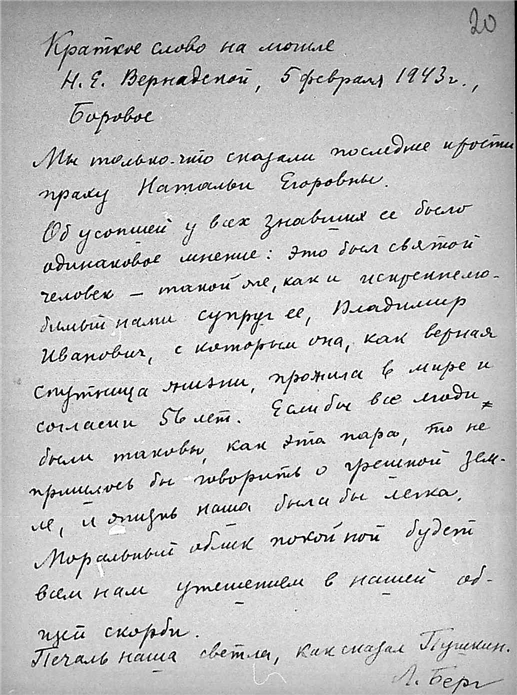 20
Краткое слово на могиле
Н. Е. Вернадской, 5 февраля 1943 г.,
Боровое
Мы только-что сказали последнее прости
праху Натальи Егоровны.
Об усопшей у всех знавших ее было
одинаковое мнение: это был святой
человек – такой же, как и искреннелю-
бимый нами супруг ее, Владимир
Иванович, с которым она, как верная
спутница жизни, прожила в мире и
согласии 56 лет. Если бы все люди
были таковы, как эта пара, то не
пришлось бы говорить о грешной зем-
ле, и жизнь наша была бы легка.
Моральный облик покойной будет
всем нам утешением в нашей об-
щей скорби.
Печаль наша светла, как сказал Пушкин.
Л. Берг